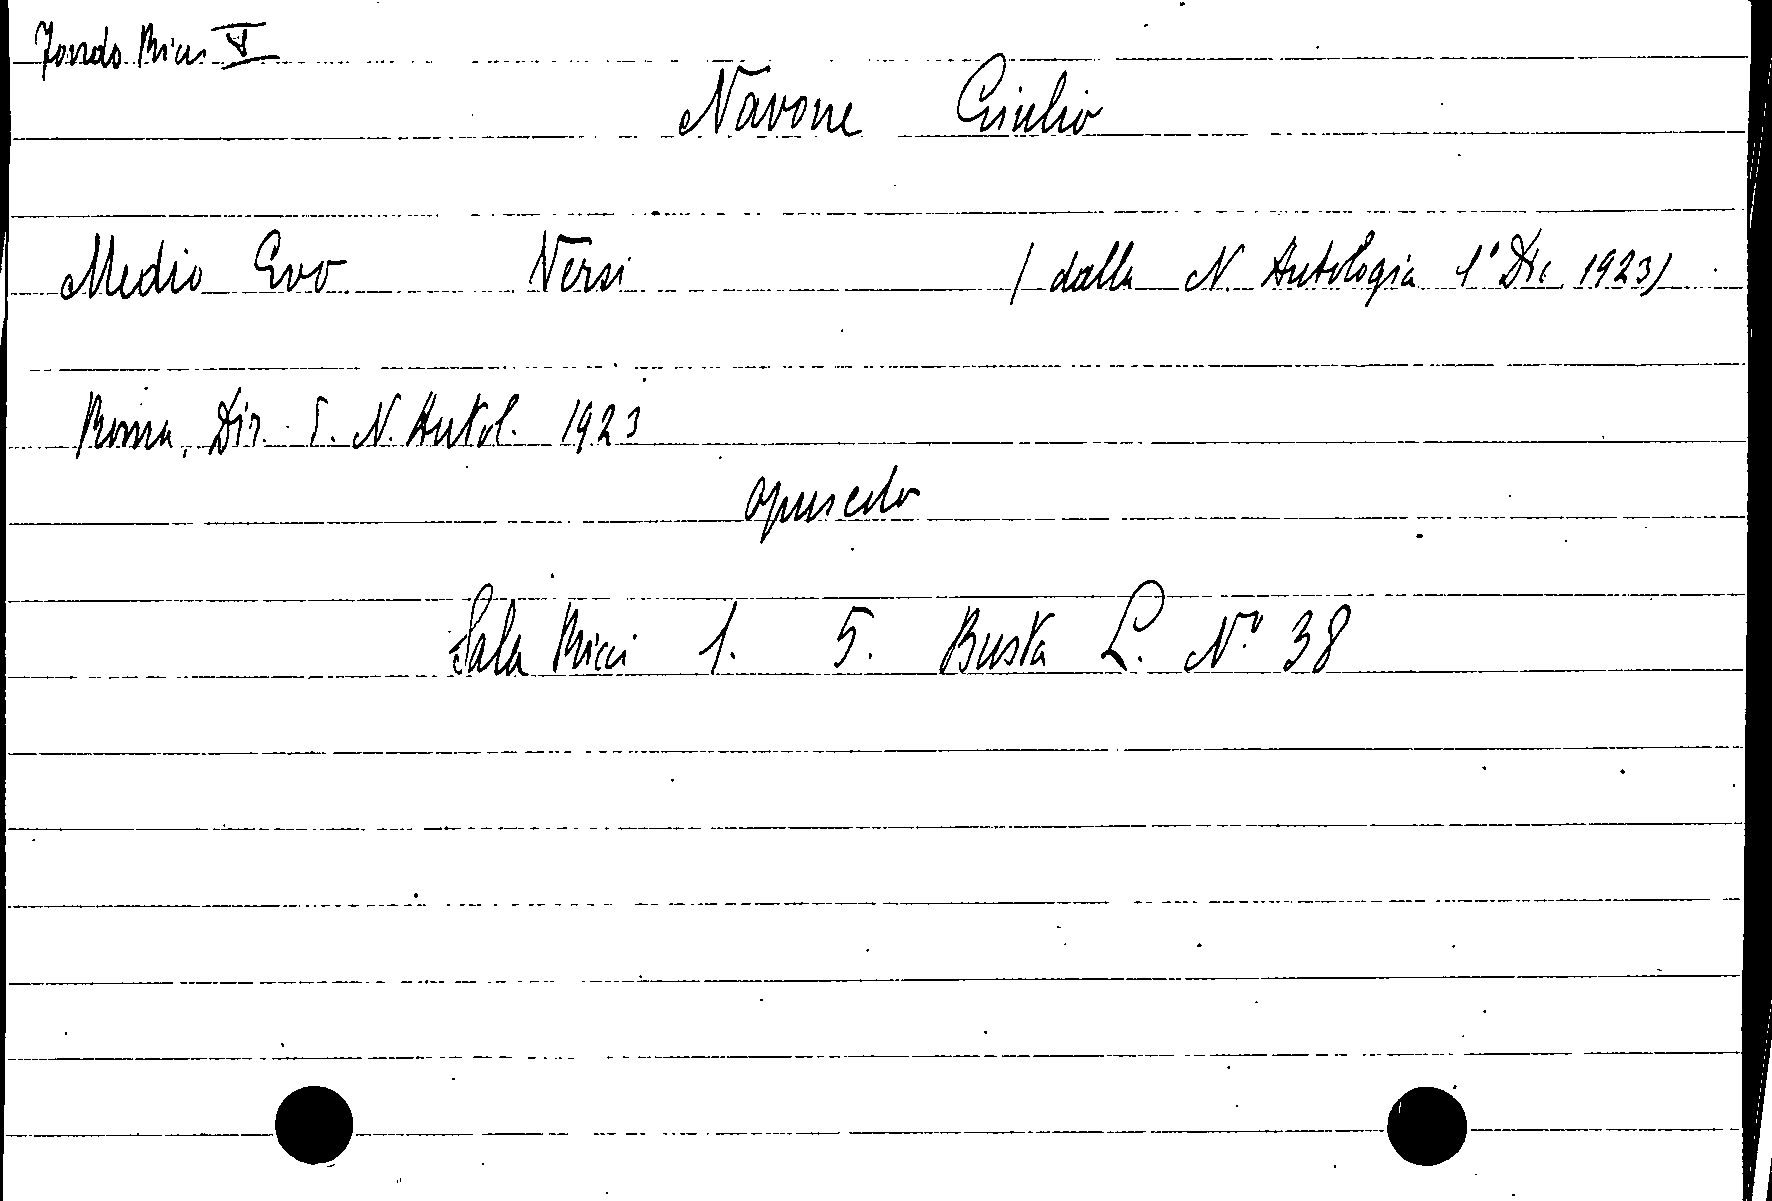 Fondo Ricci V
Navone Giulio
Medio Evo Versi (dalla N. Antologia 1° Dic 1923)
Roma, Dir. N. Antol. 1923
opuscolo
Sala Ricci 1. 5. Busta L. N.° 38